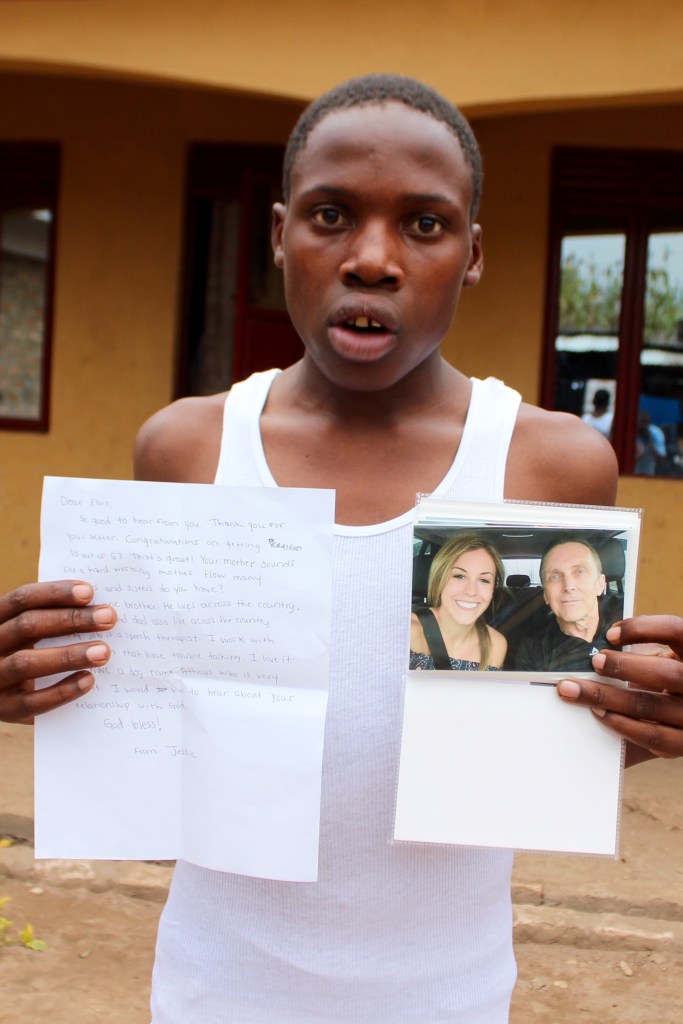 Dear
So good to hear from you. Thank you for
your letter. Congratulations on getting
10 out of 63. That's great! Your mother sounds
like a hard working mother. How many
and sisters do you have?
brother. He lives across the country.
and dad also live across the country.
job is a speech therapist. I work with
that have trouble talking. I love it
a dog name who is very
I would to hear about your
relationship with God.
God bless!
From Jessie